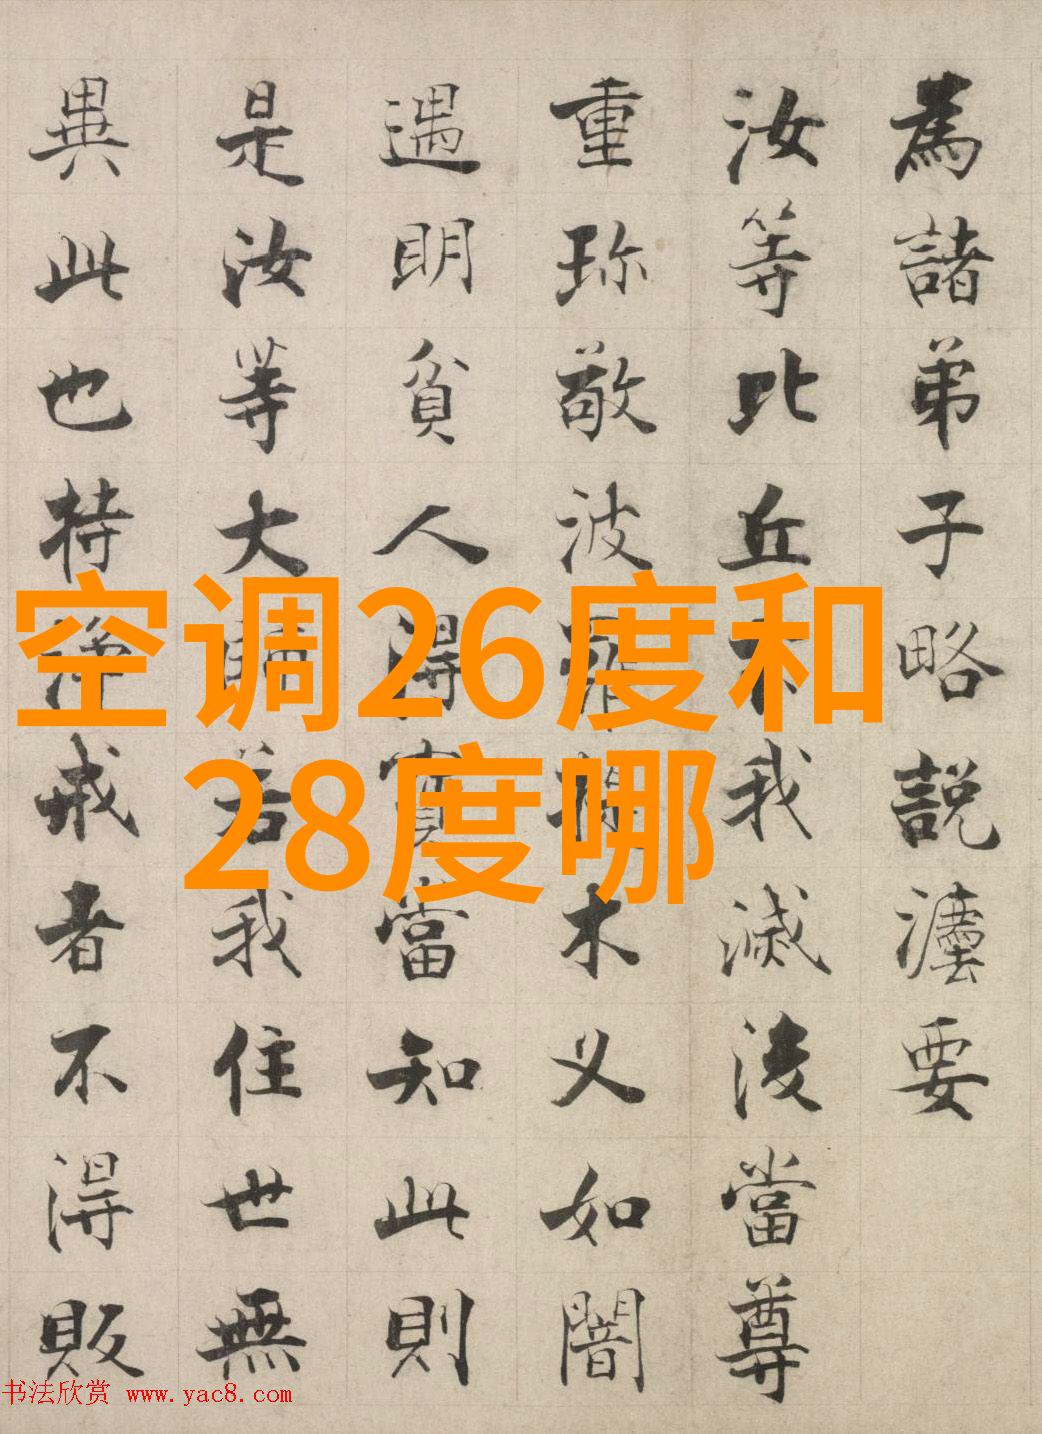 為諸弟子略説法要
汝等比丘於我滅後當尊
重珎敬波羅提木叉如闇
遇明貧人得寶當知此則
是汝等大師若我住世無
異此也持淨戒者不得販
空调26度和
28度哪
书法欣赏 www.yac8.com